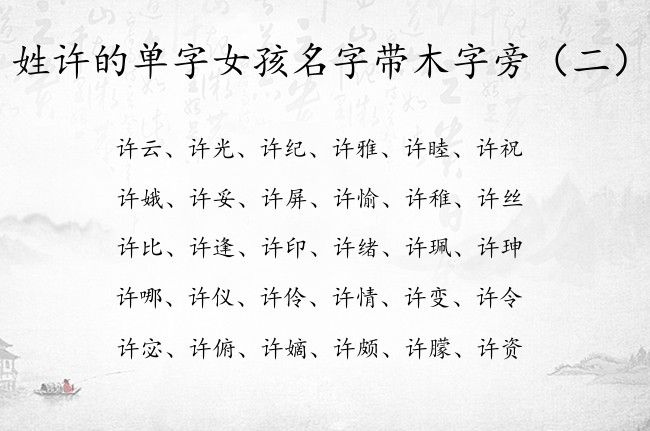 姓许的单字女孩名字带木字旁（二）
许云、许光、许纪、许雅、许睦、许祝
许娥、许妥、许屏、许愉、许稚、许丝
许比、许逢、许印、许绪、许珮、许珅
许哪、许仪、许伶、许情、许变、许令
许宓、许俯、许嫡、许颇、许朦、许资